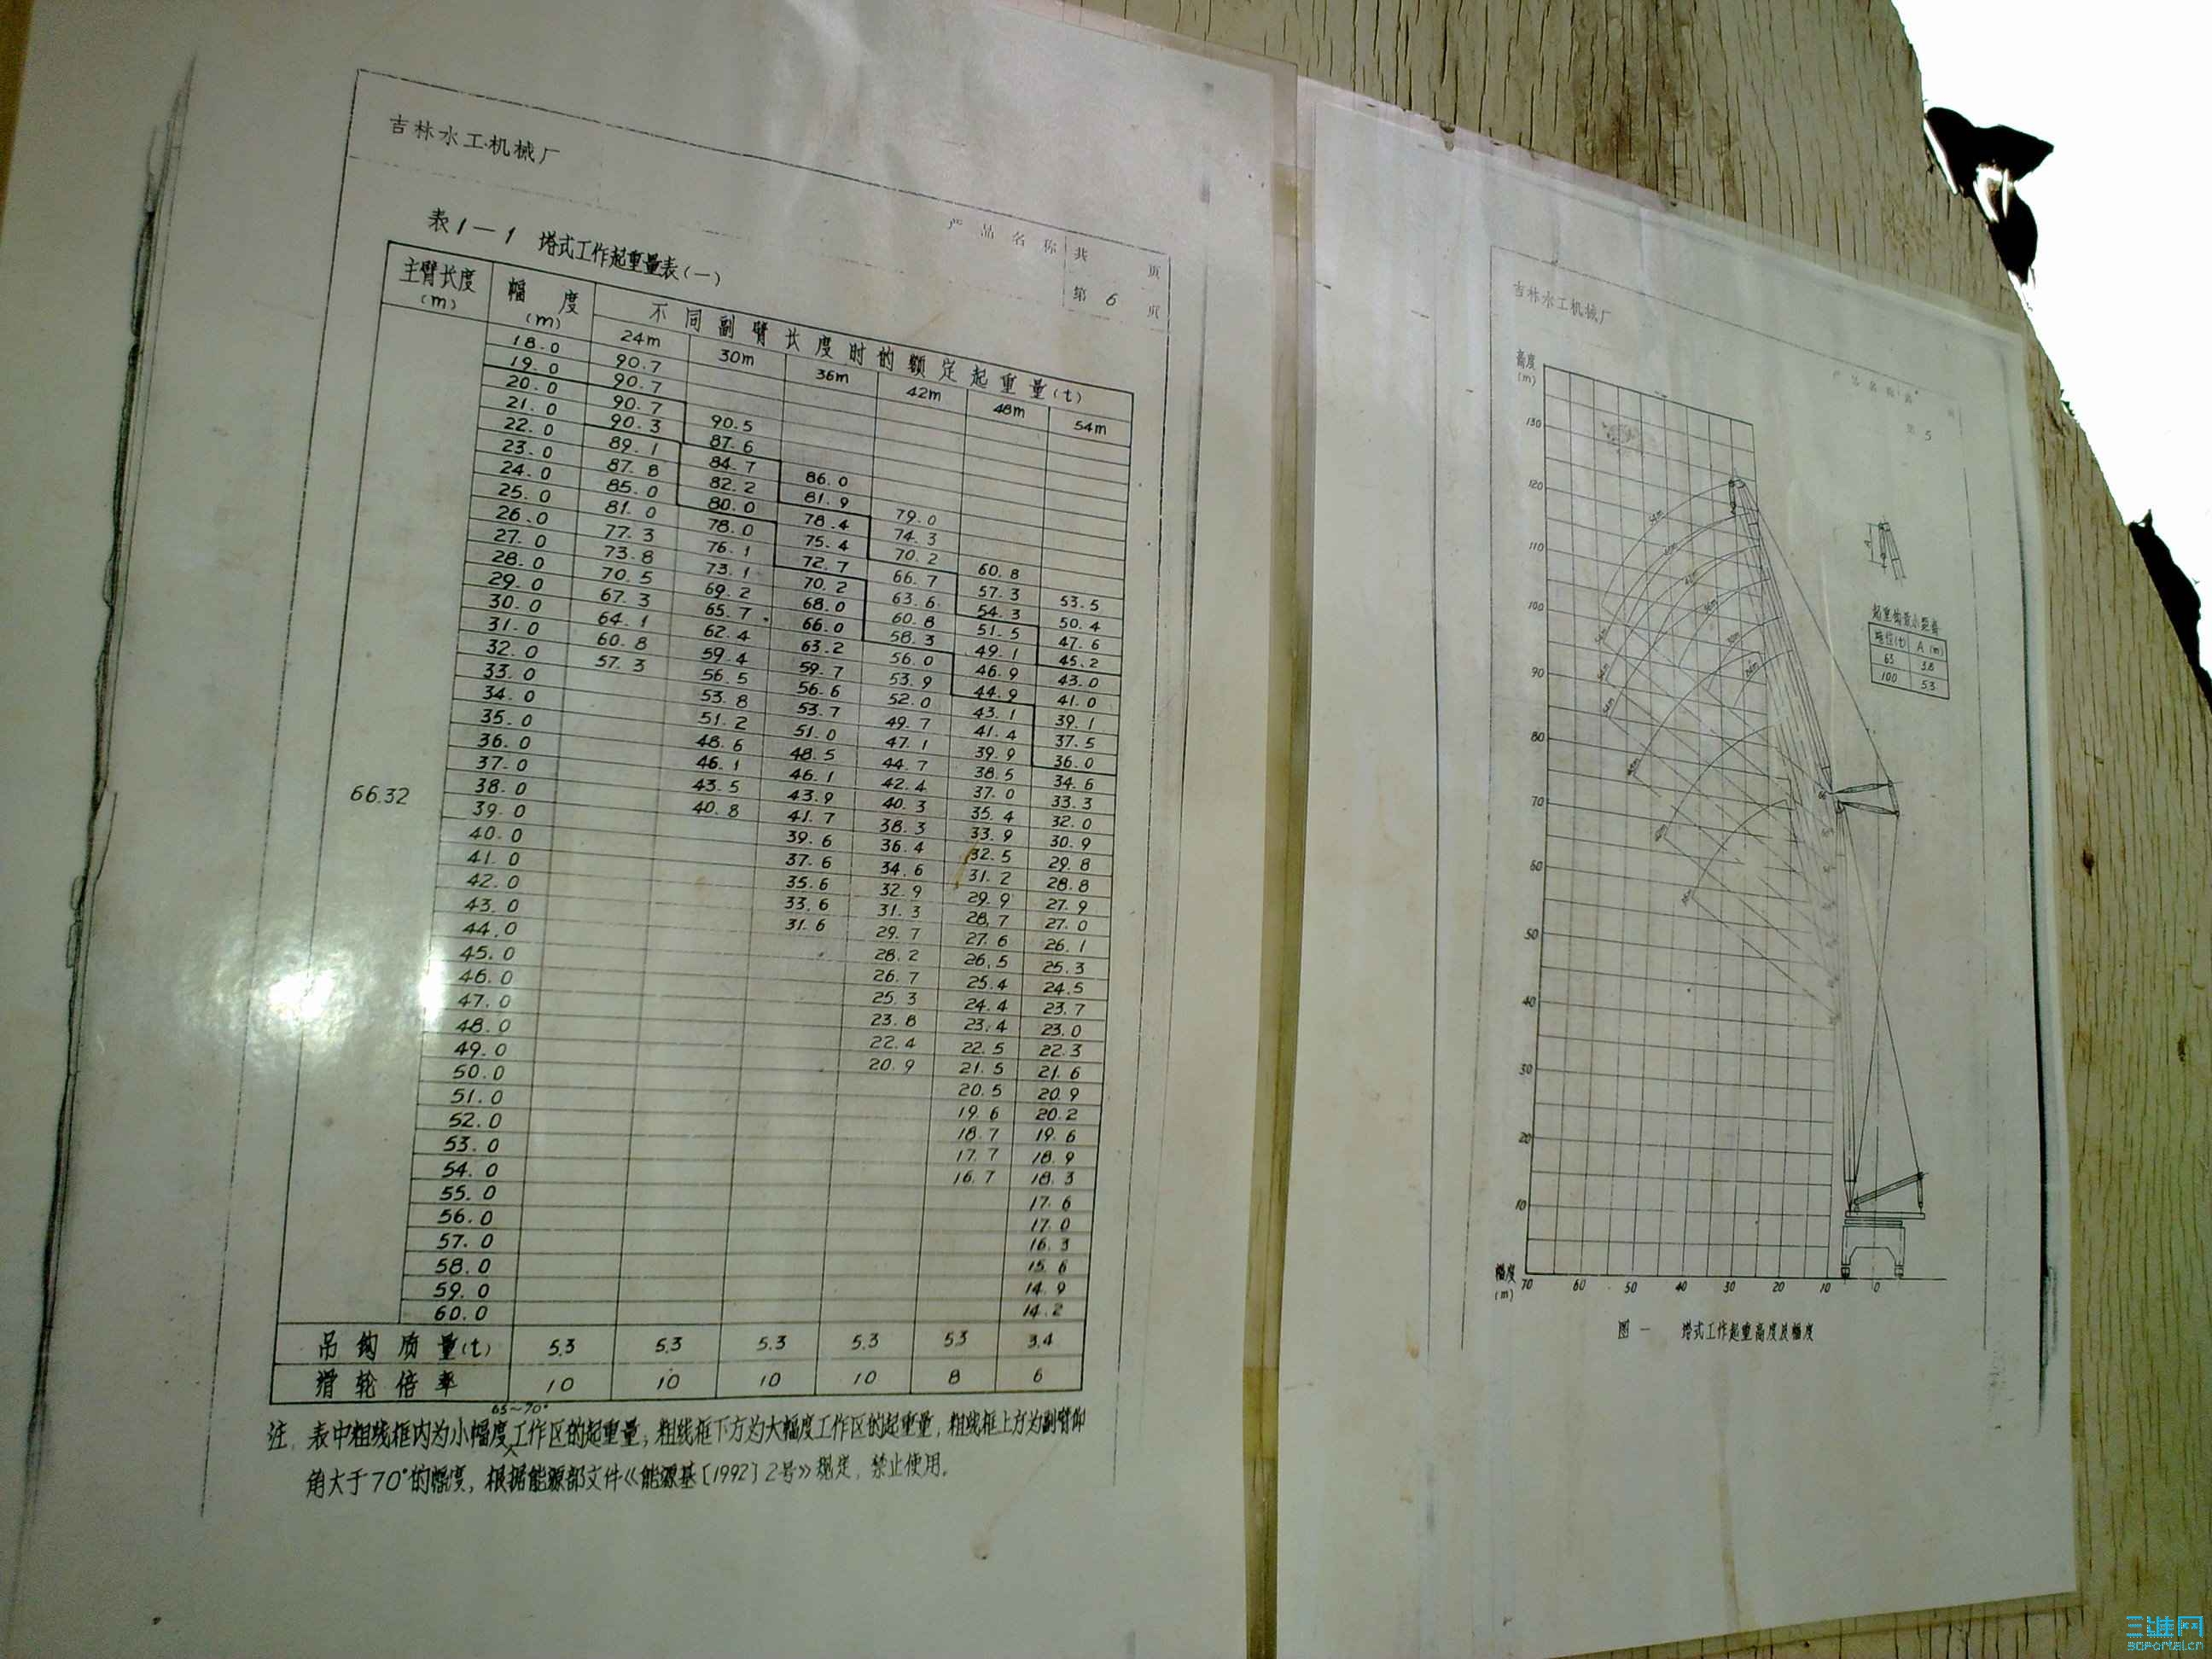 吉林水工机械厂
产品名称 共 页
第 6 页
表1—1 塔式工作起重量表(一)
主臂长度(m) 幅度(m) 不同副臂长度时的额定起重量(t)
24m 30m 36m 42m 48m 54m
66.32
18.0 90.7
19.0 90.7
20.0 90.7 90.5
21.0 90.3 87.6
22.0 89.1 84.7 86.0
23.0 87.8 82.2 81.9 79.0
24.0 85.0 80.0 78.4 74.3
25.0 81.0 78.0 75.4 70.2 60.8
26.0 77.3 76.1 72.7 66.7 57.3 53.5
27.0 73.8 73.1 70.2 63.6 54.3 50.4
28.0 70.5 69.2 68.0 60.8 51.5 47.6
29.0 67.3 65.7 66.0 58.3 49.1 45.2
30.0 64.1 62.4 63.2 56.0 46.9 43.0
31.0 60.8 59.4 59.7 53.9 44.9 41.0
32.0 57.3 56.5 56.6 52.0 43.1 39.1
33.0 53.8 53.7 49.7 41.4 37.5
34.0 51.2 51.0 47.1 39.9 36.0
35.0 48.6 48.5 44.7 38.5 34.6
36.0 46.1 46.1 42.4 37.0 33.3
37.0 43.5 43.9 40.3 35.4 32.0
38.0 40.8 41.7 38.3 33.9 30.9
39.0 39.6 36.4 32.5 29.8
40.0 37.6 34.6 31.2 28.8
41.0 35.6 32.9 29.9 27.9
42.0 33.6 31.3 28.7 27.0
43.0 31.6 29.7 27.6 26.1
44.0 28.2 26.5 25.3
45.0 26.7 25.4 24.5
46.0 25.3 24.4 23.7
47.0 23.8 23.4 23.0
48.0 22.4 22.5 22.3
49.0 20.9 21.5 21.6
50.0 20.5 20.9
51.0 19.6 20.2
52.0 18.7 19.6
53.0 17.7 18.9
54.0 16.7 18.3
55.0 17.6
56.0 17.0
57.0 16.3
58.0 15.6
59.0 14.9
60.0 14.2
吊钩质量(t) 5.3 5.3 5.3 5.3 5.3 3.4
滑轮倍率 10 10 10 10 8 6
65~70°
注. 表中粗线框内为小幅度工作区的起重量;粗线框下方为大幅度工作区的起重量,粗线框上方为副臂仰
角大于70°的幅度,根据能源部文件《能源基[1992]2号》规定,禁止使用。
吉林水工机械厂
5
高度(m)
130
120
110
100
90
80
70
60
50
40
30
20
10
幅度(m) 70 60 50 40 30 20 10 0
起重钩最小距离
吨位(t) A (m)
63 3.8
100 5.3
图一 塔式工作起重高度及幅度
三维网
3dportal.cn